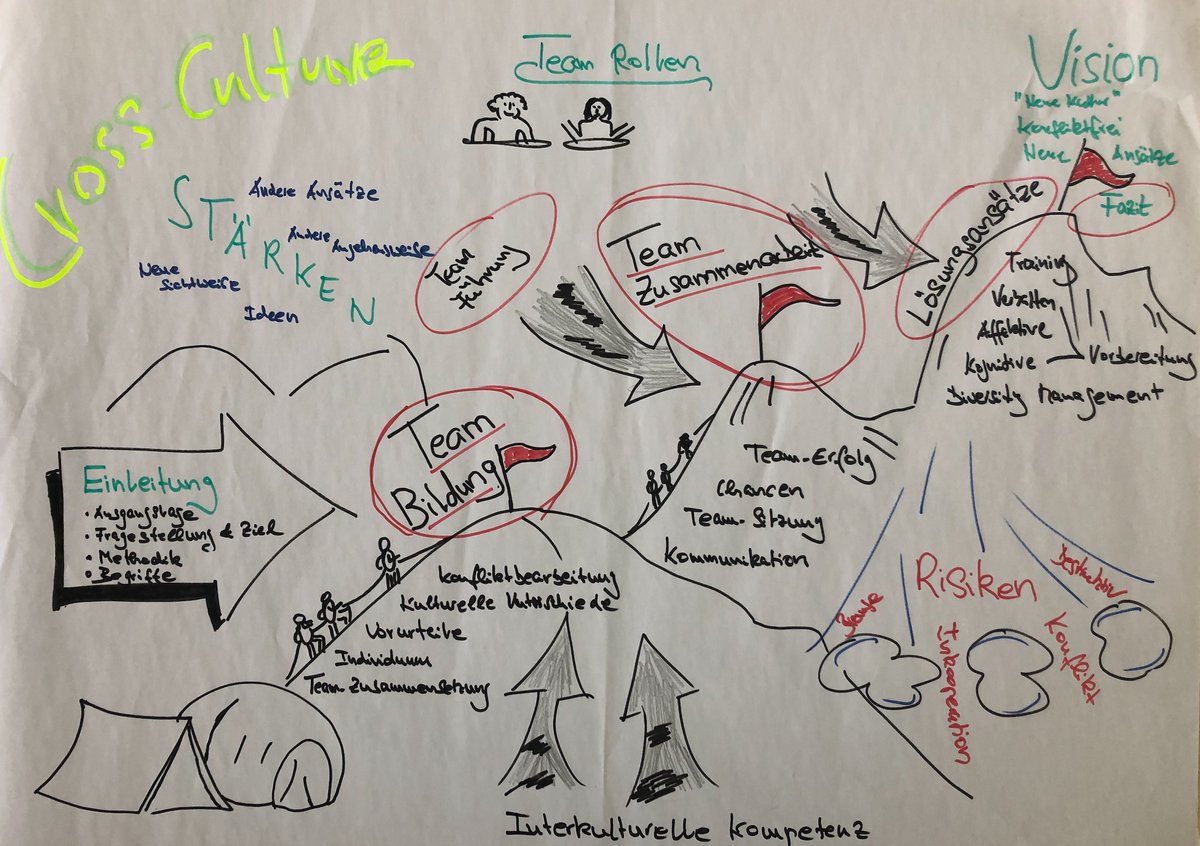 Cross Culture
Team Rollen
Vision
"Neue Kultur"
Konfliktfrei
Neue Ansätze
Fazit
STÄRKEN
Andere Ansätze
Andere
Neue
Sichtweise
Ideen
Team
führung
Team
Zusammenarbeit
Lösungsansätze
Training
Affektive
Kognitive
Vorbereitung
Diversity Management
Team
Bildung
Einleitung
• Ausgangslage
• Fragestellung & Ziel
• Methodik
• Begriffe
Team-Erfolg
Chancen
Team-Sitzung
Kommunikation
Konfliktbearbeitung
Kulturelle
Vorurteile
Individuum
Team-Zusammensetzung
Risiken
Konflikt
Interkulturelle Kompetenz